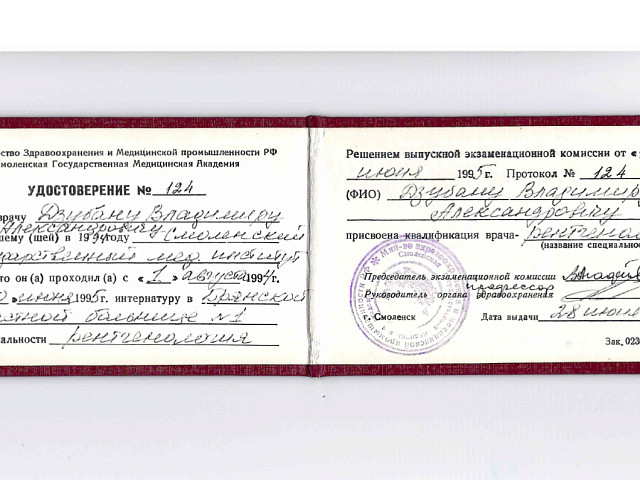 ство Здравоохранения и Медицинской промышленности РФ
моленская Государственная Медицинская Академия
УДОСТОВЕРЕНИЕ № 124
врачу Дзубану Владимиру
Александровичу
шему (шей) в 1994 году Смоленский
дарственный мед. институт
то он (а) проходил (а) с «1» августа 1994 г.
0 июня 1995 г. интернатуру в Брянской
стной больнице №1
альности рентгенология
Решением выпускной экзаменационной комиссии от «
июня 1995 г. Протокол № 124
(ФИО) Дзубану Владимиру
Александровичу
присвоена квалификация врача- рентгеноло
(название специальнос
Председатель экзаменационной комиссии
профессор
Руководитель органа здравоохранения
г. Смоленск Дата выдачи 28 июня
Зак. 023